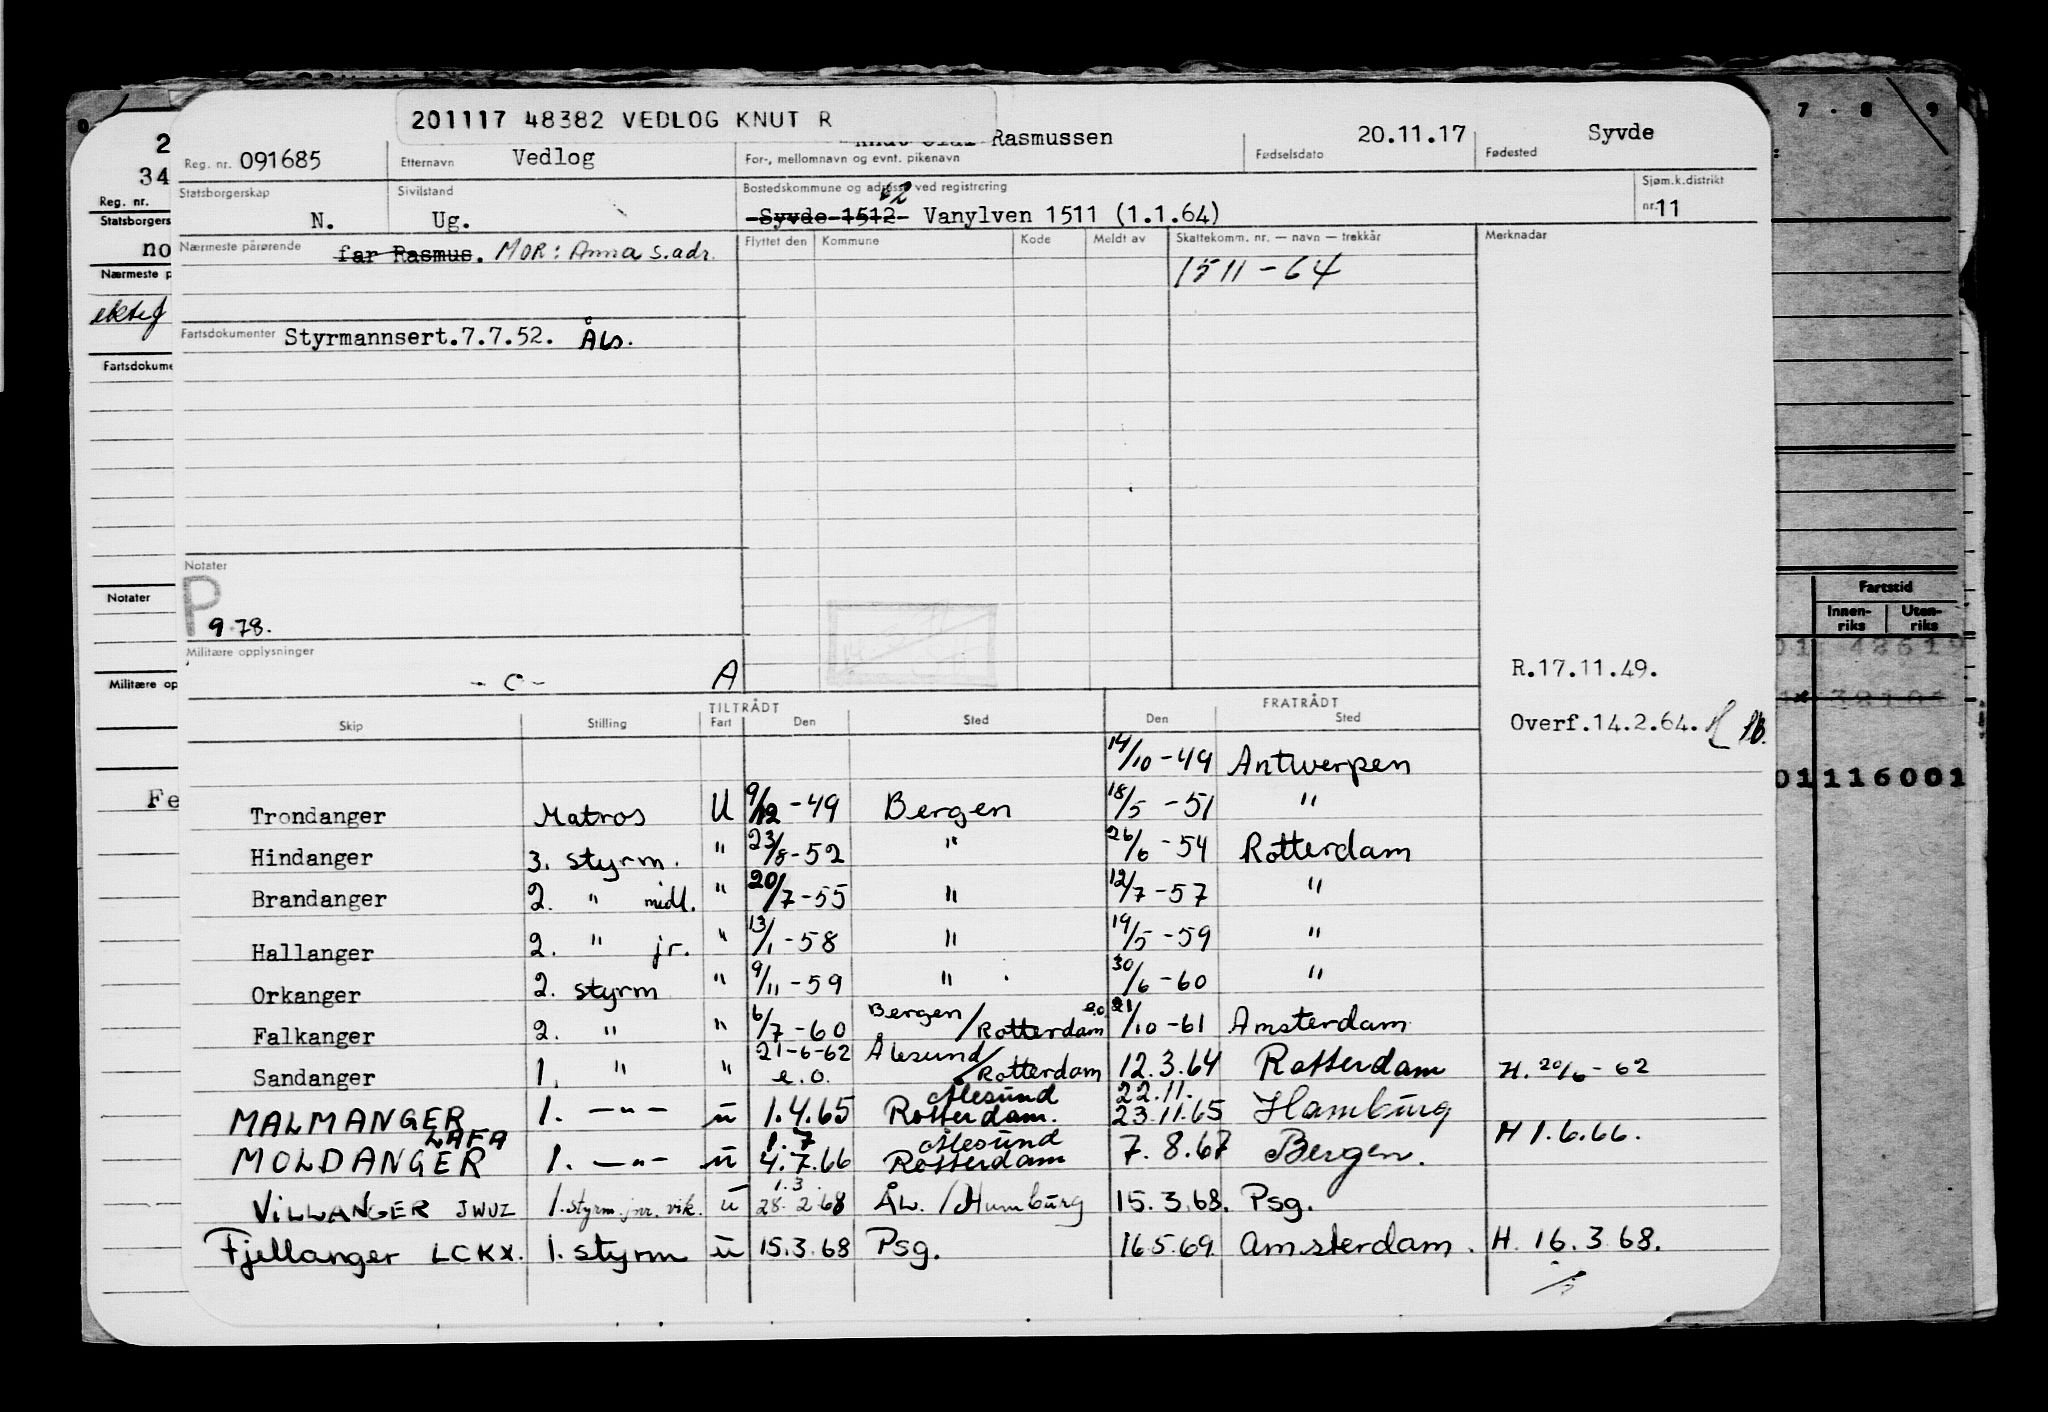 201117 48382 VEDLOG KNUT R
Reg. nr. 091685 Etternavn Vedlog For-, mellomnavn og evnt. pikenavn Rasmussen Fødselsdato 20.11.17 Fødested Syvde
Statsborgerskap N. Sivilstand Ug. Bostedskommune og adresse ved registrering Syvde 1512 Vanylven 1511 (1.1.64) Sjøm.k.distrikt nr. 11
Nærmeste pårørende far Rasmus. MOR: Anna s.adr. Flyttet den Kommune Kode Meldt av Skattekomm. nr. — navn — trekkår Merknader
1511-64
Fartsdokumenter Styrmannsert.7.7.52. Åls.
Notater
P 9.78.
Militære opplysninger
- C - A
R.17.11.49.
Overf.14.2.64.
TILTRÅDT FRATRÅDT
Skip Stilling Fart Den Sted Den Sted
14/10-49 Antwerpen
Trondanger Matros U 9/12-49 Bergen 18/5-51 "
Hindanger 3. styrm. " 23/8-52 " 26/6-54 Rotterdam
Brandanger 2. " midl. " 20/7-55 " 12/7-57 "
Hallanger 2. " jr. " 13/1-58 " 19/5-59 "
Orkanger 2. styrm " 9/11-59 " 30/6-60 "
Falkanger 2. " " 6/7-60 Bergen/Rotterdam e.o 21/10-61 Amsterdam
Sandanger 1. " " 21-6-62 e.o. Ålesund/Rotterdam 12.3.64 Rotterdam H. 20/6-62
MALMANGER 1. —"— u 1.4.65 Ålesund Rotterdam. 22.11. 23.11.65 Hamburg
MOLDANGER LAFA 1. —"— u 1.7 4.7.66 Ålesund Rotterdam 7.8.67 Bergen. H 1.6.66.
VILLANGER JWUZ 1. styrm. jnr. vik. u 1.3. 28.2.68 ÅL./Hamburg 15.3.68. Psg.
Fjellanger LCKX. 1. styrm u 15.3.68 Psg. 16.5.69 Amsterdam. H. 16.3.68.
2
34
Reg. nr.
Statsborgers
no
Nærmeste p
ektef
Fartsdokume
Notater
Militære op
Fe
7 - 8 9
Fartstid
Innen-riks Uten-riks
01116001